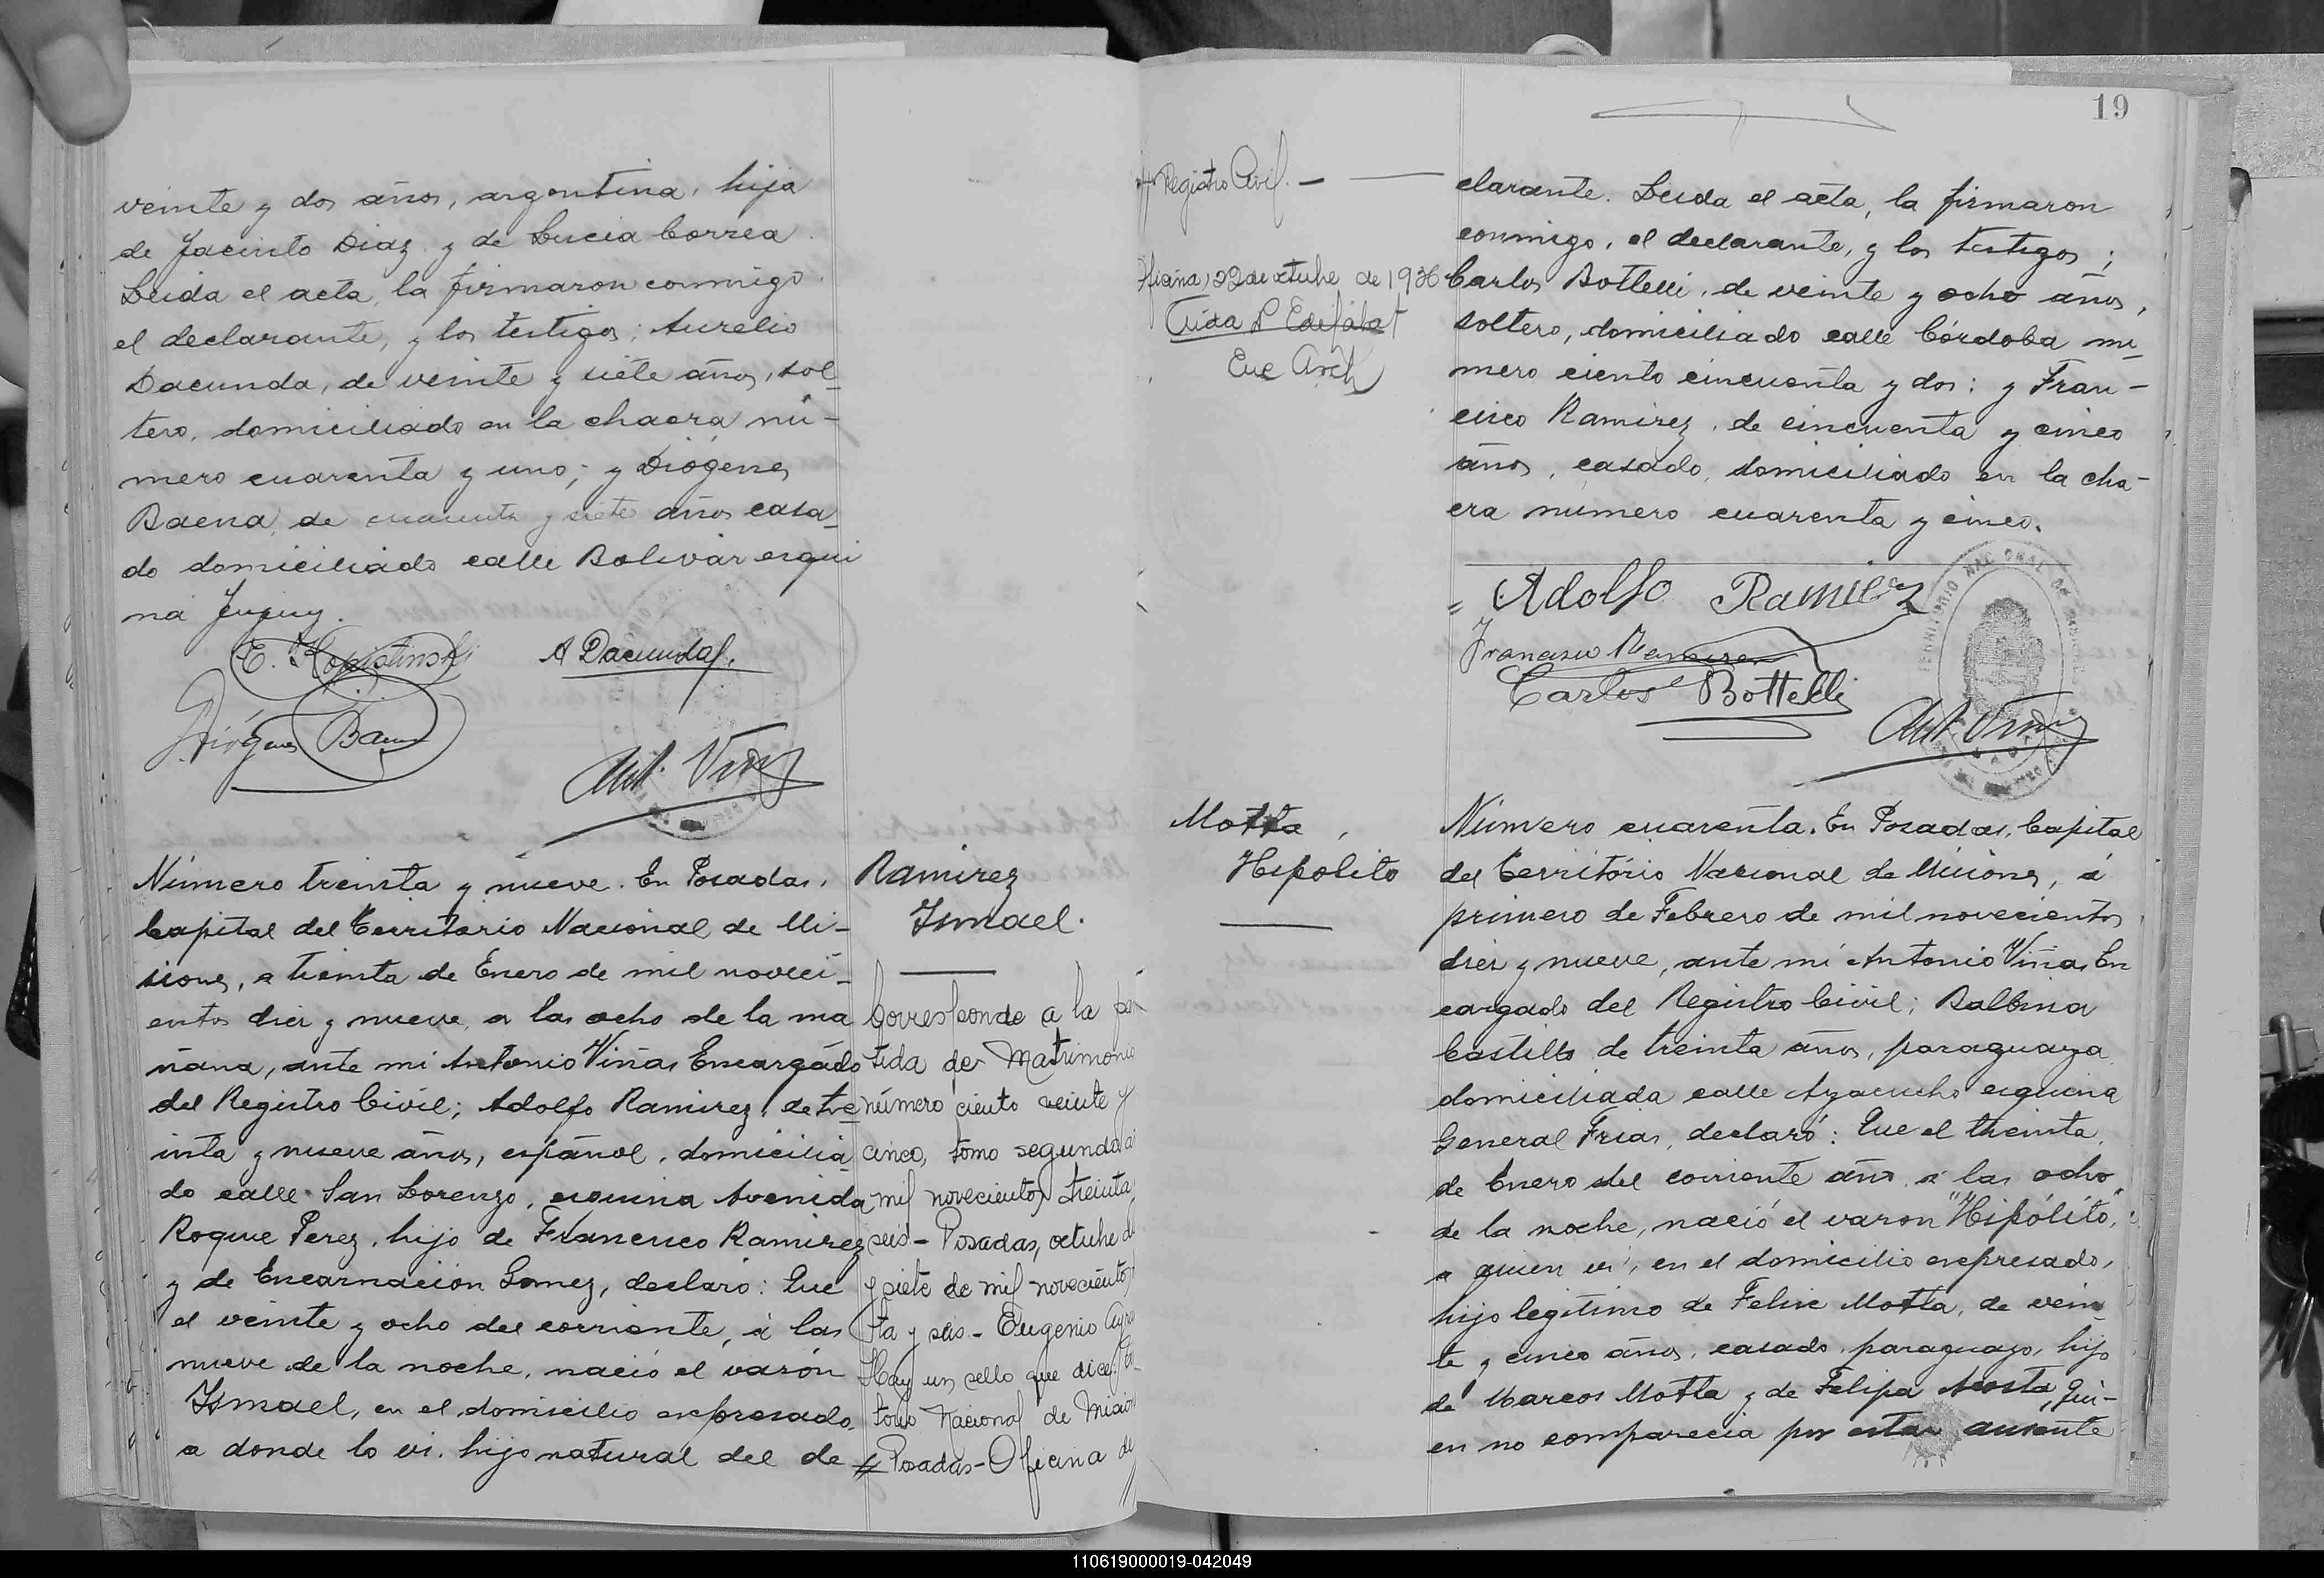 veinte y dos años, argentina, hija
de Jacinto Diaz y de Lucia Correa.
Leida el acta, la firmaron conmigo
el declarante, y los testigos; Aurelio
Dacunda, de veinte y siete años, sol-
tero, domiciliado en la chacra nú-
mero cuarenta y uno; y Diógenes
Baena, de cuarenta y siete años casa-
do domiciliado calle Bolivar esqui
na Jujuy.
A Dacunda
Diógenes Baena
Ant. Viñas
Número treinta y nueve. En Posadas,
Capital del Territorio Nacional de Mi-
siones, a treinta de Enero de mil noveci-
entos diez y nueve, a las ocho de la ma
ñana, ante mi Antonio Viñas Encargado
del Registro Civil; Adolfo Ramirez, de tre
inta y nueve años, español, domicilia
do calle San Lorenzo, esquina Avenida
Roque Perez, hijo de Francisco Ramirez
y de Encarnación Gomez, declaró: Que
el veinte y ocho del corriente, á las
nueve de la noche, nació el varón
Ismael, en el domicilio expresado,
a donde lo vi, hijo natural del de
Ramirez
Ismael.
Corresponde a la par
tida de Matrimonio
número ciento veinte y
cinco, tomo segundo
mil novecientos treinta
seis - Posadas, octubre
y siete de mil novecientos
ta y seis.- Eugenio
Hay un sello que dice:
torio Nacional de Mision
# Posadas - Oficina de
19
# Registro Civil. -
ficina, 22 de octubre de 1936
Enc Arch
clarante. Leida el acta, la firmaron
conmigo, el declarante, y los testigos;
Carlos Bottelli, de veinte y ocho años,
soltero, domiciliado calle Córdoba nu-
mero ciento cincuenta y dos; y Fran-
cisco Ramirez, de cincuenta y cinco
años, casado, domiciliado en la cha-
cra número cuarenta y cinco.
Adolfo Ramirez
Francisco Ramirez
Carlos Bottelli
Ant. Viñas
Motta,
Hipolito
Número cuarenta. En Posadas, Capital
del Territorio Nacional de Misiones, á
primero de Febrero de mil novecientos
diez y nueve, ante mi Antonio Viñas En
cargado del Registro Civil; Balbina
Castillo de treinta años, paraguaya
domiciliada calle Ayacucho esquina
General Frias, declaró: Que el treinta
de Enero del corriente año á las ocho
de la noche, nació el varon "Hipólito",
a quien vi, en el domicilio expresado,
hijo legitimo de Felix Motta, de vein
te y cinco años, casado, paraguayo, hijo
de Marcos Motta y de Felipa Acosta, qui-
en no comparecia por estar ausente
110619000019-042049